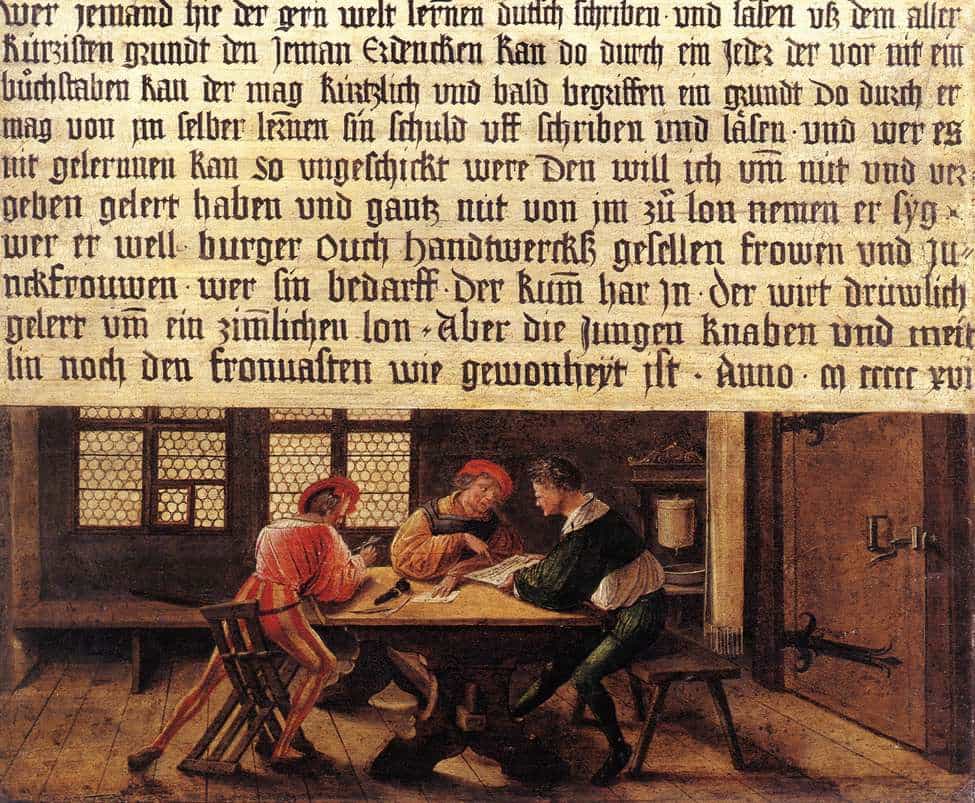 wer jemand hie der gern welt lernen dutsch schriben · und läsen uß dem aller
kürzisten grundt den Jeman Erdencken kan do durch ein Jeder der vor nit ein
bůchstaben kan der mag kürtzlich und bald begriffen ein grundt do durch er
mag von jm selber lernen sin schuld uff schriben und läsen · und wer es
nit gelernnen kan so ungeschickt were Den will ich um̄ nüt und ver-
geben gelert haben und gantz nüt von jm zů lon nemen er syg ·
wer er well · burger ouch handtwerckß gesellen frowen und Ju-
nckfrouwen · wer sin bedarff · Der kum̄ har jn · der wirt drüwlich
gelert um̄ ein zim̄lichen lon · Aber die Jungen knaben und meit
lin noch den fronvasten wie gewonheyt ist · Anno · m ccccc xvi